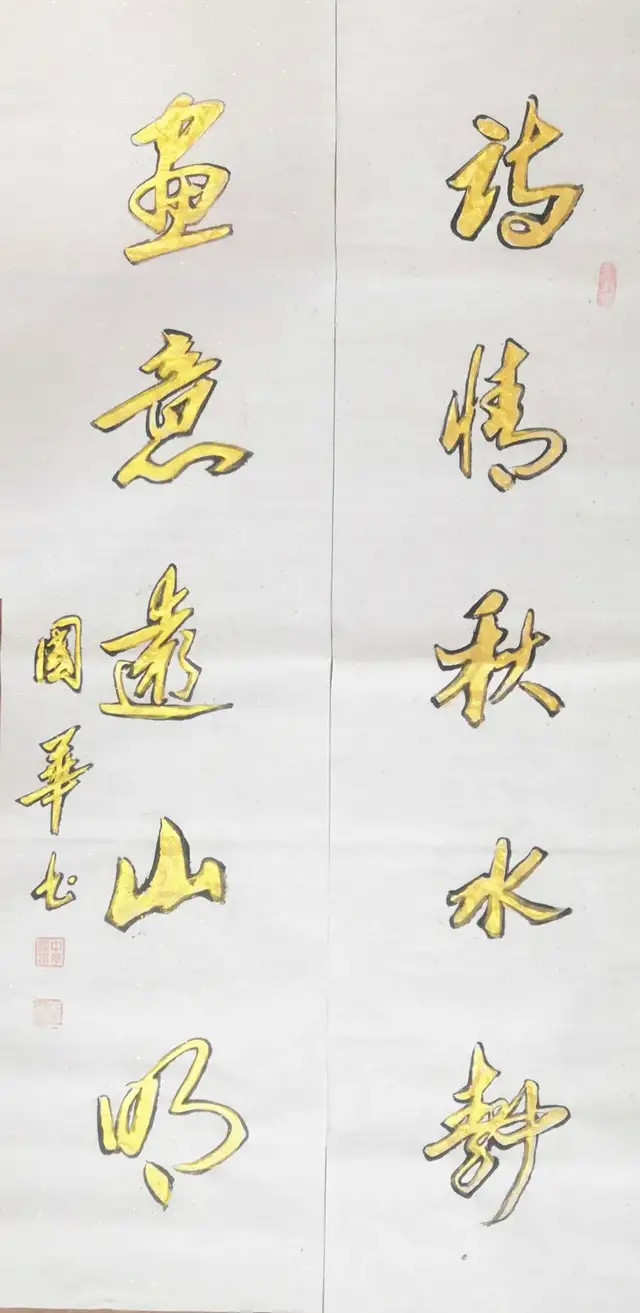 詩情秋水靜
畫意遠山明
國華书